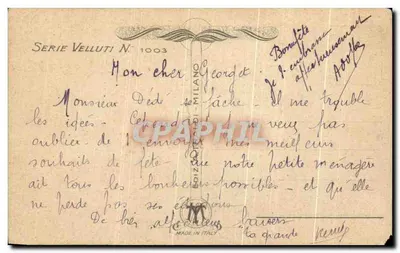 SERIE VELLUTI N. 1003
Mon cher Georget.
Monsieur Dédé se fâche. il me trouble
les idées. Cet veux pas
oublier de t'envoyer mes meilleurs
souhaits de fête. que notre petite ménagère
ait tous les bonheurs possibles. et qu'elle
ne perde pas ses
De très affectueux baisers
ta grande
Bonne fête
Je t'embrasse
affectueusement
MILANO
MADE IN ITALY